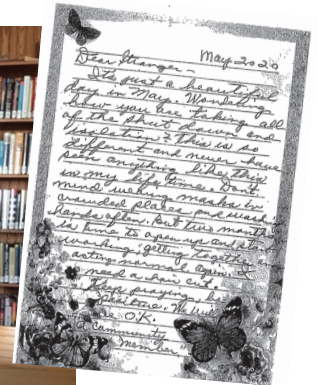 May 2020
Dear Stranger -
It's just a beautiful
day in May. Wondering
how you are taking all
of the shut down and
isolation? This is so
different and never have
seen anything like this
in my life time. Don't
mind wearing masks in
crowded places and wash
hands often. But two months
is time to open up and start
working, getting together and
acting normal again. I
need a hair cut.
Keep praying, be
positive. We will
be O.K.
a community
member